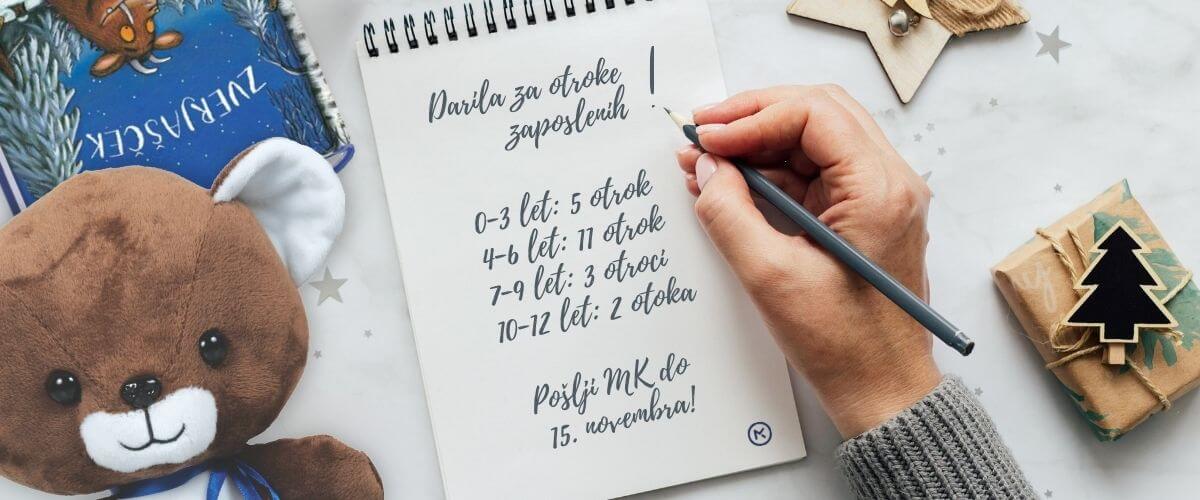 ZVERJAŠČEK
Darila za otroke !
zaposlenih
0-3 let: 5 otrok
4-6 let: 11 otrok
7-9 let: 3 otroci
10-12 let: 2 otoka
Pošlji MK do
15. novembra!